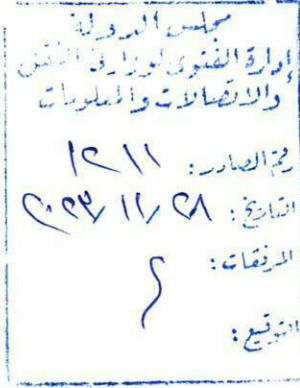 مجلس الدولة
إدارة الفتوى لوزارتى النقل
والاتصالات والمعلومات
رقم الصادر: ١٢١١
التاريخ: ٢٠٢٣/١١/٢٨
المرفقات:
التوقيع: